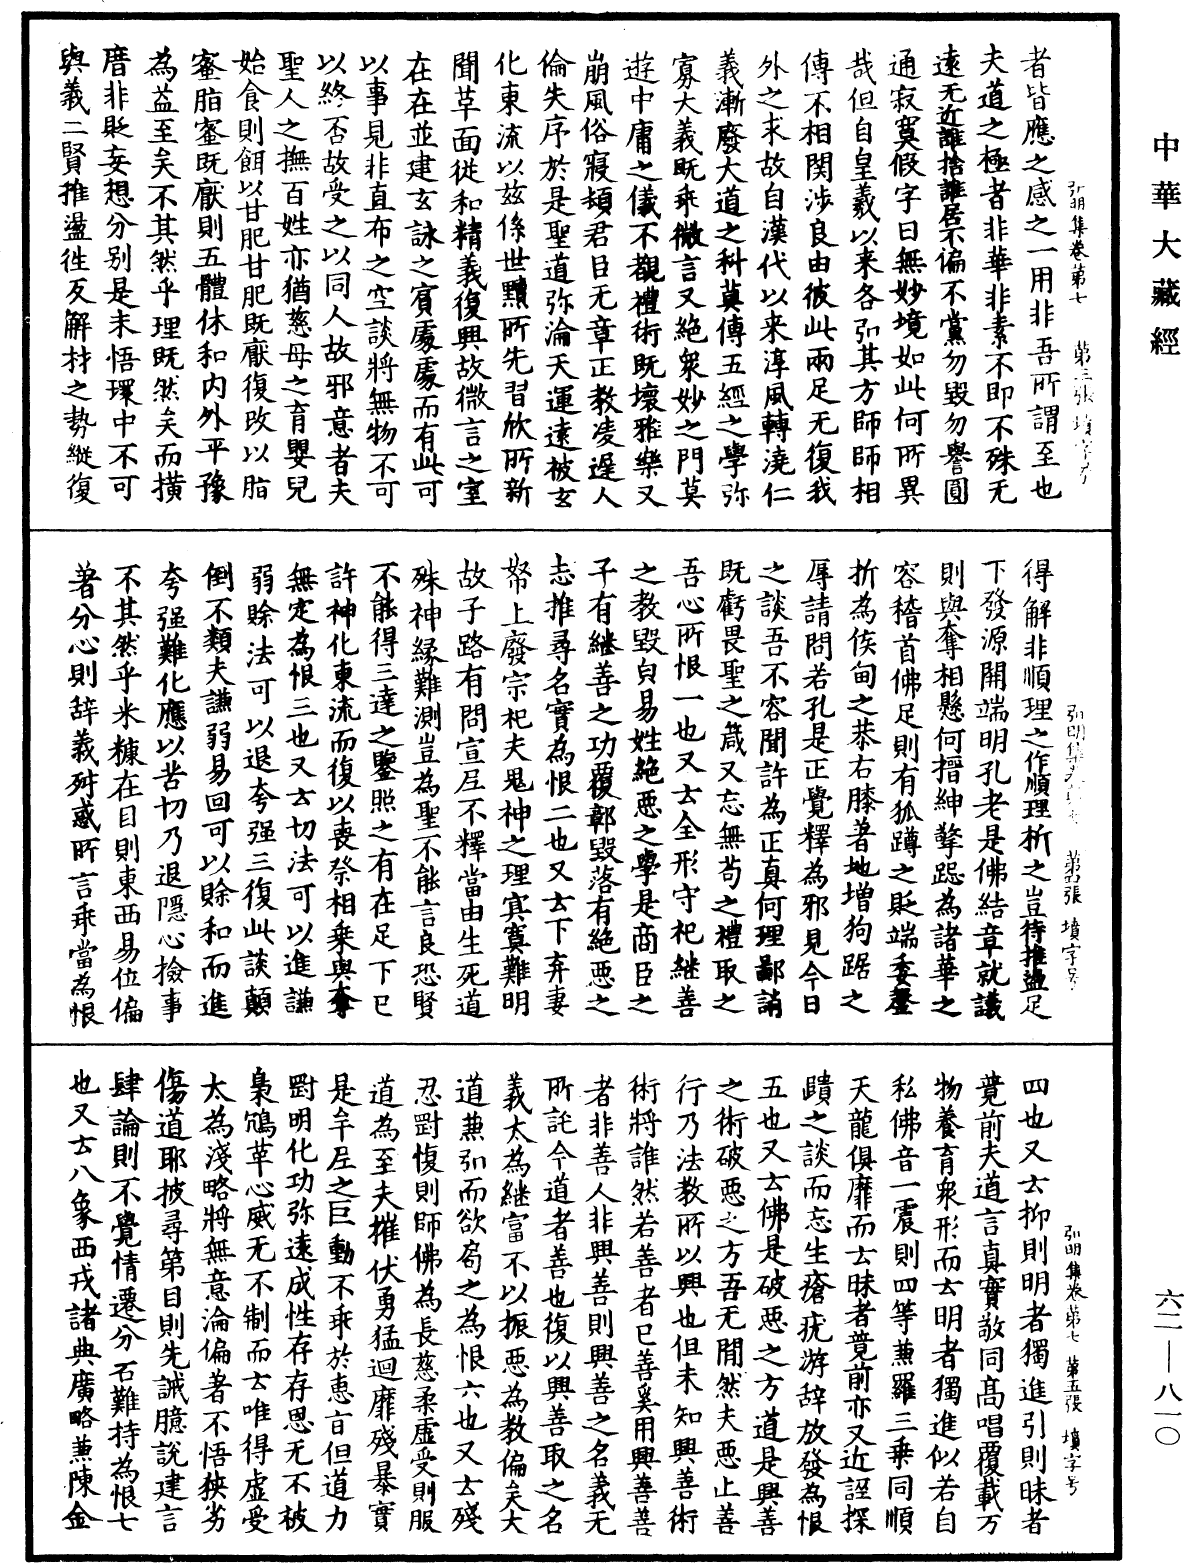 中華大藏經
弘明集卷第七　第三張　墳字号
者皆應之感之一用非吾所謂至也
夫道之極者非華非素不即不殊无
遠无近誰捨誰居不偏不黨勿毀勿譽圓
通寂寞假字曰無妙境如此何所異
哉但自皇羲以来各弘其方師師相
傳不相関涉良由彼此兩足无復我
外之求故自漢代以来淳風轉澆仁
義漸廢大道之科莫傳五經之學弥
寡大義既乖微言又絶衆妙之門莫
遊中庸之儀不覩禮術既壞雅樂又
崩風俗寝頓君臣无章正教凌遲人
倫失序於是聖道弥淪天運遠被玄
化東流以兹係世黷所先習欣所新
聞草面從和精義復興故微言之室
在在並建玄詠之賓處處而有此可
以事見非直布之空談將無物不可
以終否故受之以同人故邪意者夫
聖人之撫百姓亦猶慈母之育嬰兒
始食則餌以甘肥甘肥既厭復改以脂
蜜脂蜜既厭則五體休和内外平豫
為益至矣不其然乎理既然矣而横
厝非貶妄想分别是未悟環中不可
與義二賢推盪徃反解材之勢縱復
弘明集卷第七　第四張　墳字号
得解非順理之作順理析之豈待推盪足
下發源開端明孔老是佛結章就議
則與奪相懸何搢紳擎跽為諸華之
容稽首佛足則有狐蹲之貶端委罄
折為侯甸之恭右膝著地增狗踞之
辱請問若孔是正覺釋為邪見今日
之談吾不容聞許為正真何理鄙誚
既虧畏聖之箴又忘無苟之禮取之
吾心所恨一也又云全形守祀継善
之教毀貞易姓絶惡之學是商臣之
子有継善之功覆鄣毀落有絶惡之
志推尋名實為恨二也又云下弃妻
孥上廢宗祀夫鬼神之理冥寞難明
故子路有問宣尼不釋當由生死道
殊神縁難測豈為聖不能言良恐賢
不能得三達之鑒照之有在足下已
許神化東流而復以喪祭相乗與奪
無定為恨三也又云切法可以進謙
弱賖法可以退夸强三復此談顛
倒不類夫謙弱易回可以賖和而進
夸强難化應以苦切乃退隱心撿事
不其然乎米糠在目則東西易位偏
著分心則辞義舛惑所言乖當為恨
弘明集卷第七　第五張　墳字号
四也又云抑則明者獨進引則昧者
競前夫道言真實敬同高唱覆載万
物養育衆形而云明者獨進似若自
私佛音一震則四等兼羅三乗同順
天龍俱靡而云昧者競前亦又近誣探
賾之談而忘生瘡疣游辞放發為恨
五也又云佛是破惡之方道是興善
之術破惡之方吾无閒然夫惡止善
行乃法教所以興也但未知興善術
術將誰然若善者已善奚用興善善
者非善人非興善則興善之名義无
所託今道者善也復以興善取之名
義太為継富不以振惡為教偏矣大
道兼弘而欲局之為恨六也又云殘
忍剛愎則師佛為長慈柔虚受則服
道為至夫摧伏勇猛迴靡殘暴實
是牟尼之巨動不乖於恵旨但道力
剛明化功弥遠成性存存恩无不被
梟鴆革心威无不制而云唯得虚受
太為淺略將無意淪偏著不悟狹劣
傷道耶披尋第目則先誡臆說建言
肆論則不覺情遷分石難持為恨七
也又云八象西戎諸典廣略兼陳金
六二—八一〇